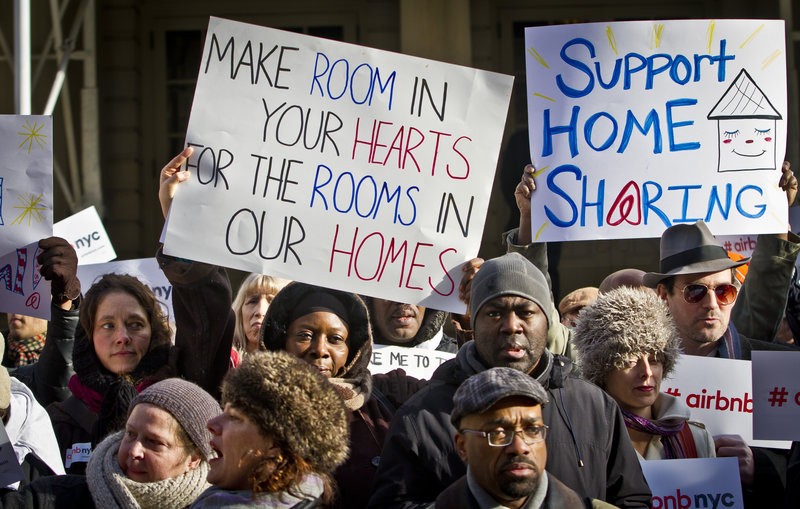 MAKE ROOM IN
YOUR HEARTS
FOR THE ROOMS IN
OUR HOMES
SUPPORT
HOME
SHARING
nyc
#airbnb
airbnb
#
nbnyc